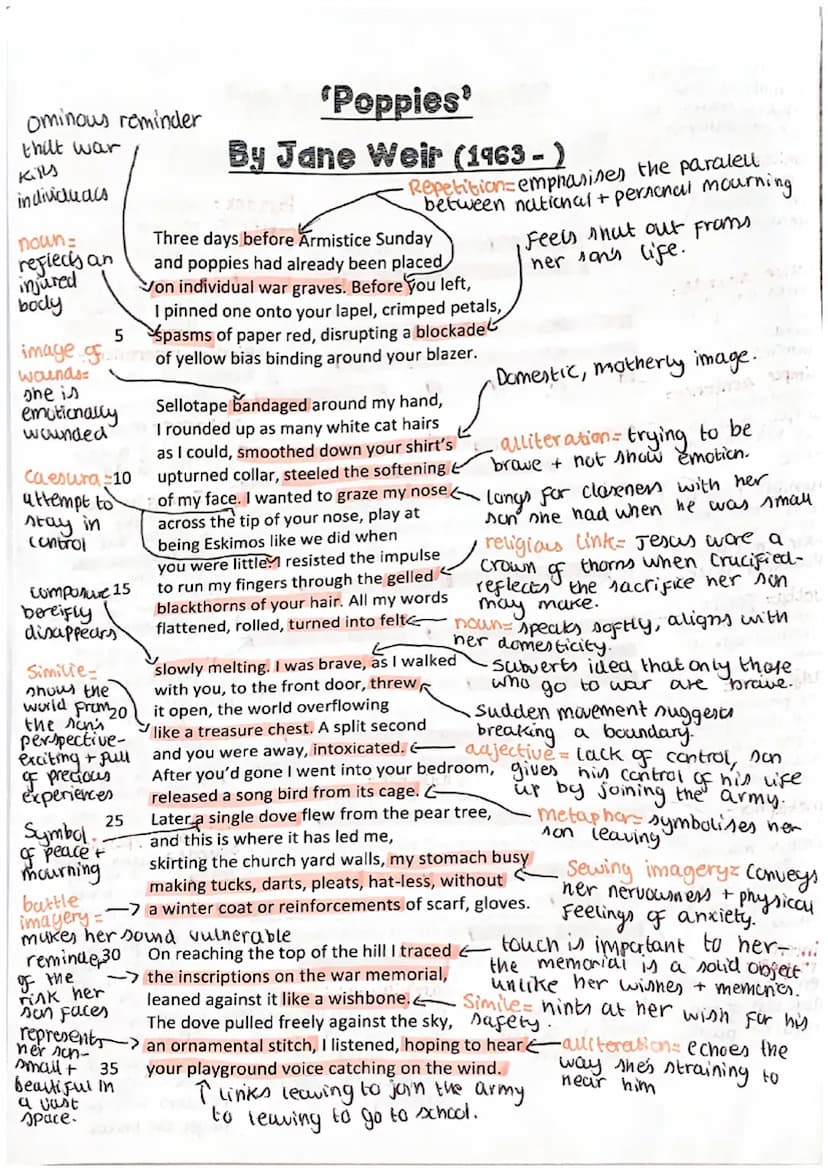 'Poppies'
By Jane Weir (1963 - )
ominous reminder
that war
kills
individuals
Repetition= emphasises the paralell
between national + personal mourning
noun=
reflects an
injured
body
Feels shut out froms
her son's life.
Three days before Armistice Sunday
and poppies had already been placed
on individual war graves. Before you left,
I pinned one onto your lapel, crimped petals,
5 spasms of paper red, disrupting a blockade
of yellow bias binding around your blazer.
image of
wounds=
she is
emotionally
wounded
Domestic, motherly image.
Sellotape bandaged around my hand,
I rounded up as many white cat hairs
as I could, smoothed down your shirt's
10 upturned collar, steeled the softening
of my face. I wanted to graze my nose
across the tip of your nose, play at
being Eskimos like we did when
you were little. I resisted the impulse
15 to run my fingers through the gelled
blackthorns of your hair. All my words
flattened, rolled, turned into felt
alliteration= trying to be
brave + not show emotion.
Caesura=
attempt to
stay in
control
longs for closeness with her
son she had when he was small
religious link= Jesus wore a
crown of thorns when crucified-
reflects the sacrifice her son
may make.
composure
bereifly
disappears
noun= speaks softly, aligns with
her domesticity.
slowly melting. I was brave, as I walked
with you, to the front door, threw
it open, the world overflowing
20 like a treasure chest. A split second
and you were away, intoxicated.
After you'd gone I went into your bedroom,
released a song bird from its cage.
25 Later a single dove flew from the pear tree,
and this is where it has led me,
skirting the church yard walls, my stomach busy
making tucks, darts, pleats, hat-less, without
a winter coat or reinforcements of scarf, gloves.
subverts idea that only those
who go to war are brave.
Similie=
shows the
world from
the son's
perspective-
exciting + full
of precious
experiences
Sudden movement suggests
breaking a boundary.
adjective= lack of control, son
gives his control of his life
up by joining the army.
metaphor= symbolises her
son leaving
Symbol
of peace +
mourning
Sewing imagery= conveys
her nervousness + physical
feelings of anxiety.
battle
imagery=
makes her sound vulnerable
30 On reaching the top of the hill I traced
the inscriptions on the war memorial,
leaned against it like a wishbone.
The dove pulled freely against the sky,
an ornamental stitch, I listened, hoping to hear
35 your playground voice catching on the wind.
reminder
of the
risk her
son faces
touch is important to her-
the memorial is a solid object
unlike her wishes + memories.
Simile= hints at her wish for his
safety.
represents
her son-
small +
beautiful in
a vast
space.
alliteration= echoes the
way she's straining to
hear him
links leaving to join the army
to leaving to go to school.